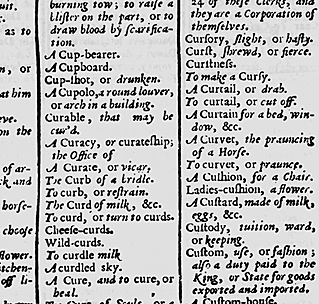 uit.
21 to
n, or
at him
eve.
on the
of ar-
ck and
horse-
choose
flower.
itchen-
off li-
burning tow; to raise a
blister on the part, or to
draw blood by scarifica-
tion.
A Cup-bearer.
A Cupboard.
Cup-shot, or drunken.
A Cupolo, a round louver,
or arch in a building.
Curable, that may be
cur'd.
A Curacy, or curateship;
the Office of
A Curate, or vicar,
The Curb of a bridle.
To curb, or restrain.
The Curd of milk, &c.
To curd, or turn to curds.
Cheese-curds.
Wild-curds.
To curdle milk
A curdled sky.
A Cure, and to cure, or
heal.
24 of these Clerks, and
they are a Corporation of
themselves.
Cursory, slight, or hasty.
Curst, shrewd, or fierce.
Curstness.
To make a Cursy.
A Curtail, or drab.
To curtail, or cut off.
A Curtain for a bed, win-
dow, &c.
A Curvet, the prauncing
of a Horse.
To curvet, or praunce.
A Cushion, for a Chair.
Ladies-cushion, a flower.
A Custard, made of milk,
eggs, &c.
Custody, tuition, ward,
or keeping.
Custom, use, or fashion;
also a duty paid to the
King, or State for goods
exported and imported,
A Custom-house.